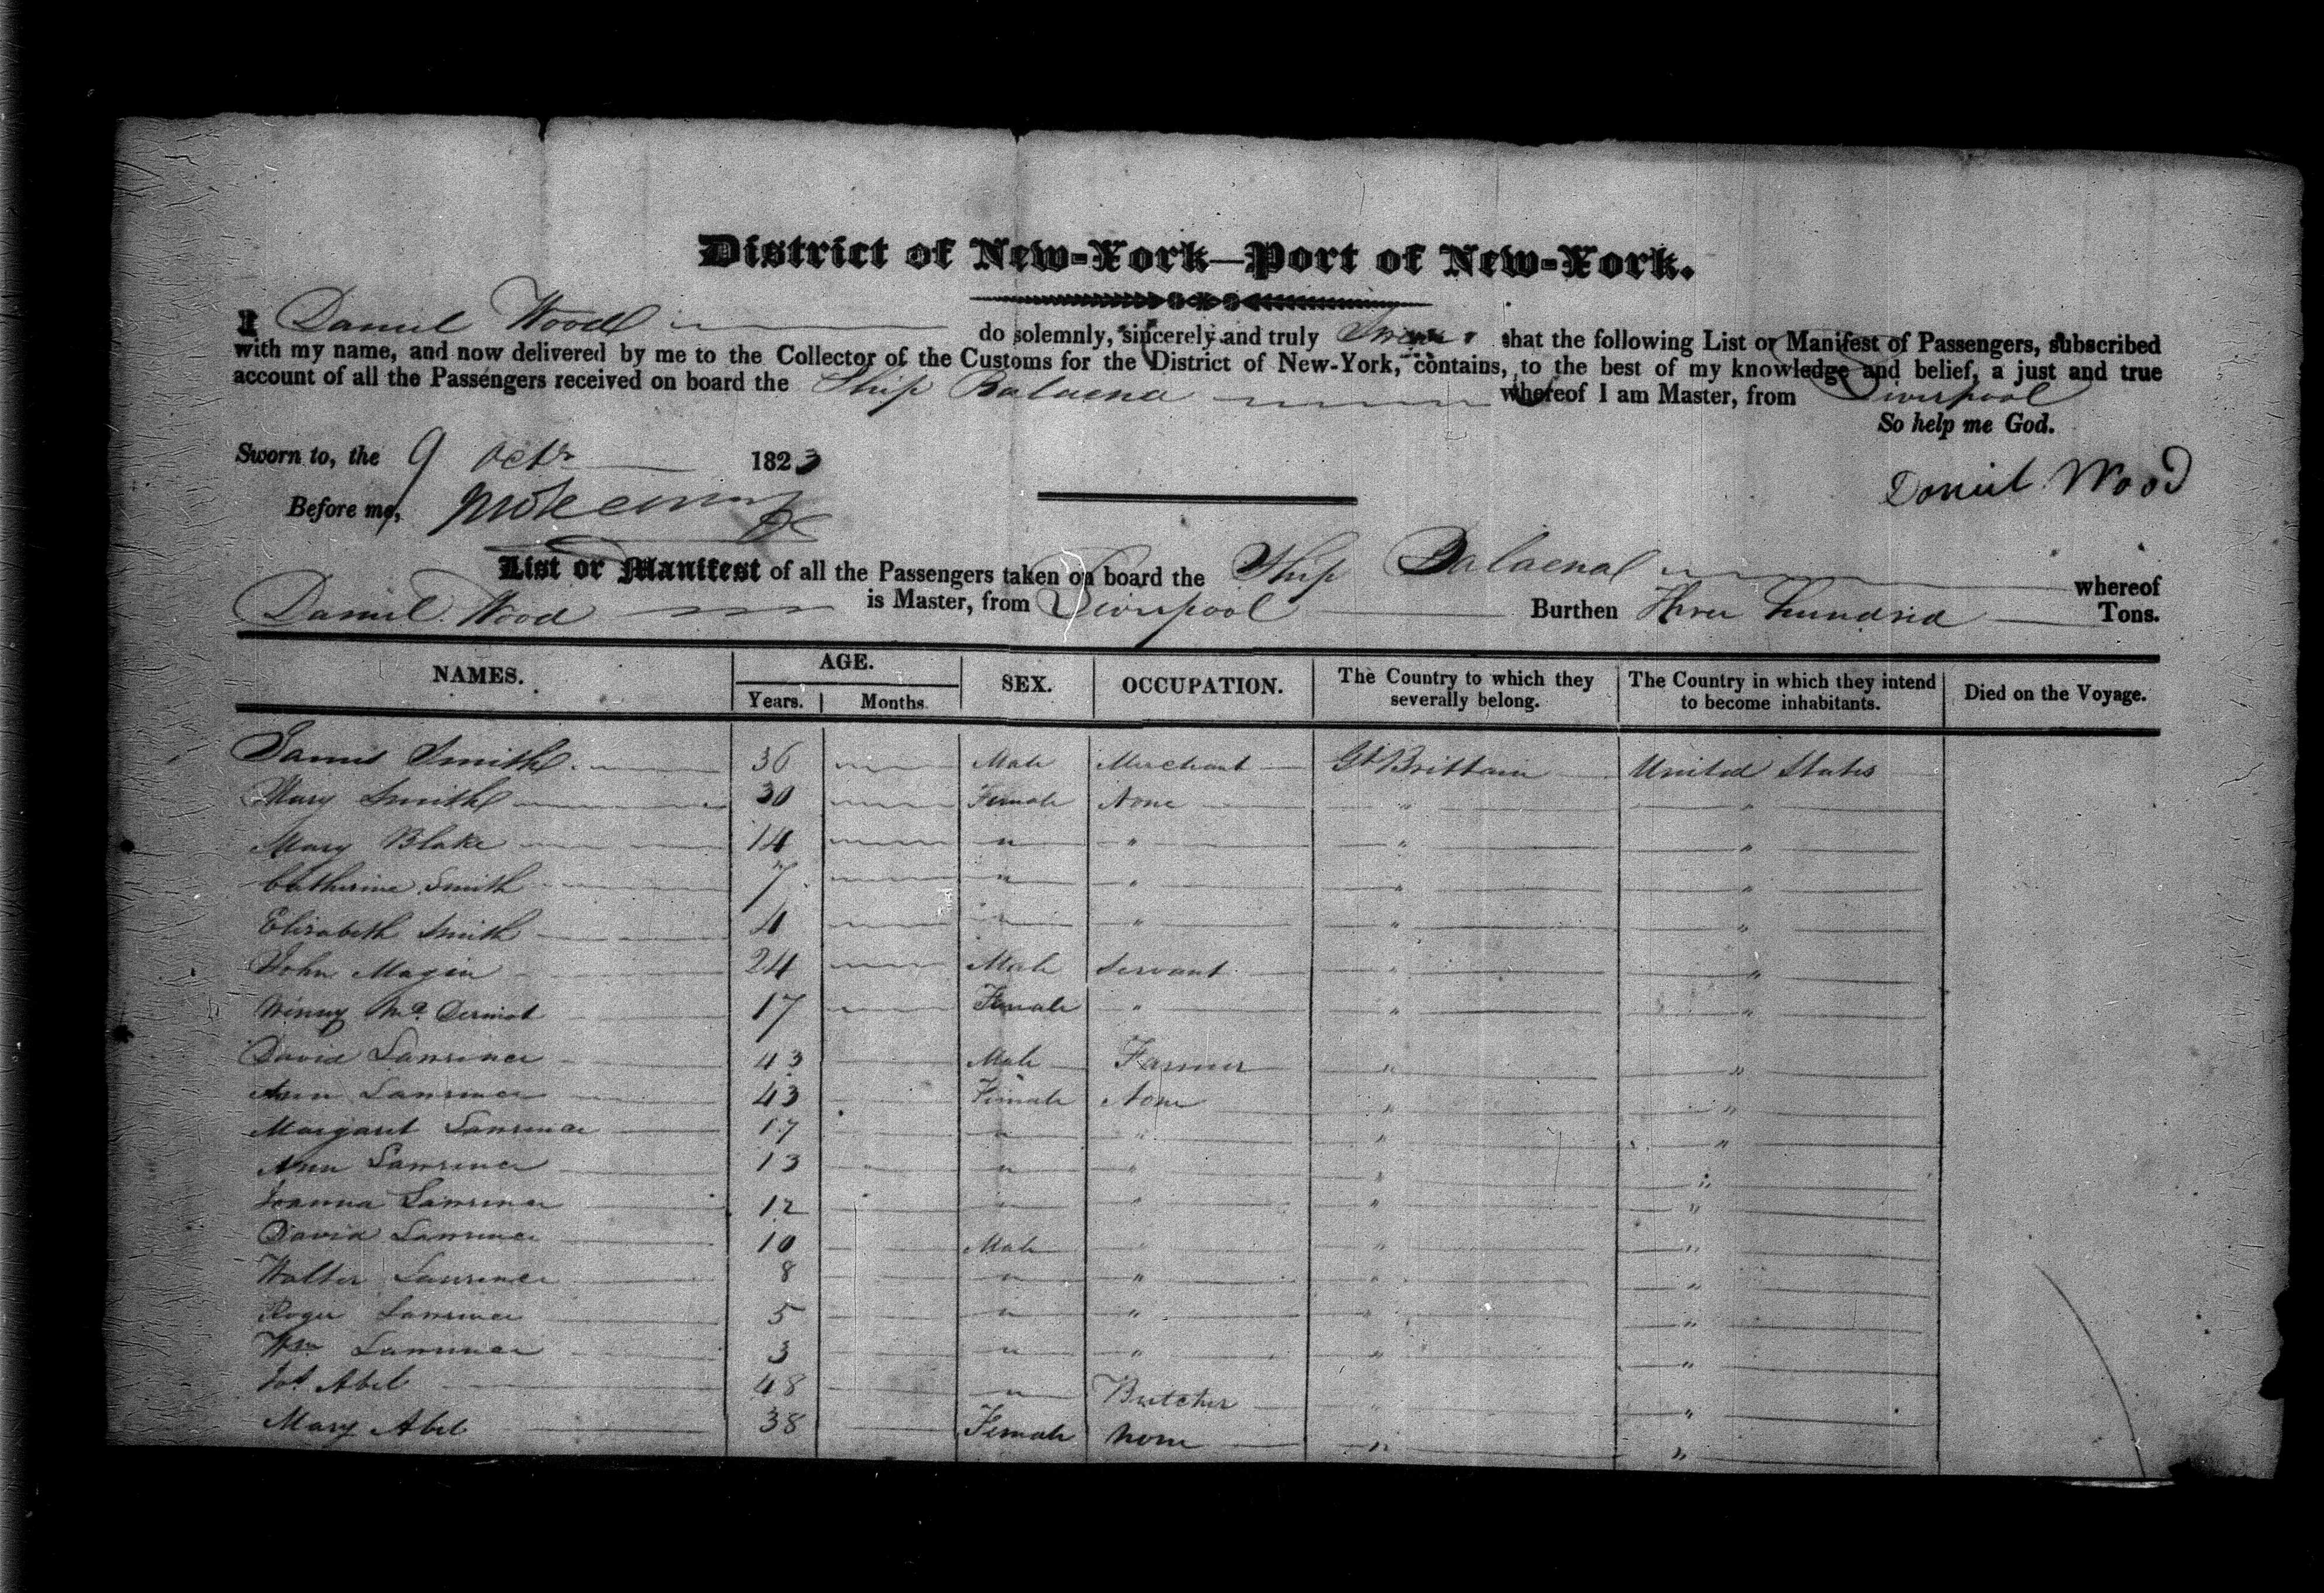 District of New-York—Port of New-York.
I Daniel Wood do solemnly, sincerely and truly Swear that the following List or Manifest of Passengers, subscribed
with my name, and now delivered by me to the Collector of the Customs for the District of New-York, contains, to the best of my knowledge and belief, a just and true
account of all the Passengers received on board the Ship Balaena whereof I am Master, from Liverpool
So help me God.
Sworn to, the 9 Octr 1823
Daniel Wood
Before me,
List or Manifest of all the Passengers taken on board the Ship Balaena whereof
Daniel Wood is Master, from Liverpool Burthen Three hundred Tons.
NAMES. AGE. Years. Months. SEX. OCCUPATION. The Country to which they severally belong. The Country in which they intend to become inhabitants. Died on the Voyage.
James Smith 36 Male Merchant Gt Brittain United States
Mary Smith 30 Female None " "
Mary Blake 14 " " " "
Catherine Smith 7 " " " "
Elizabeth Smith 4 " " " "
John Magin 24 Male Servant " "
Winny McDermot 17 Female " " "
David Lawrence 43 Male Farmer " "
Ann Lawrence 43 Female None " "
Margaret Lawrence 17 " " " "
Ann Lawrence 13 " " " "
Joanna Lawrence 12 " " " "
David Lawrence 10 Male " " "
Walter Lawrence 8 " " " "
Roger Lawrence 5 " " " "
Wm Lawrence 3 " " " "
Abel 48 " Butcher " "
Mary Abel 38 Female None " "